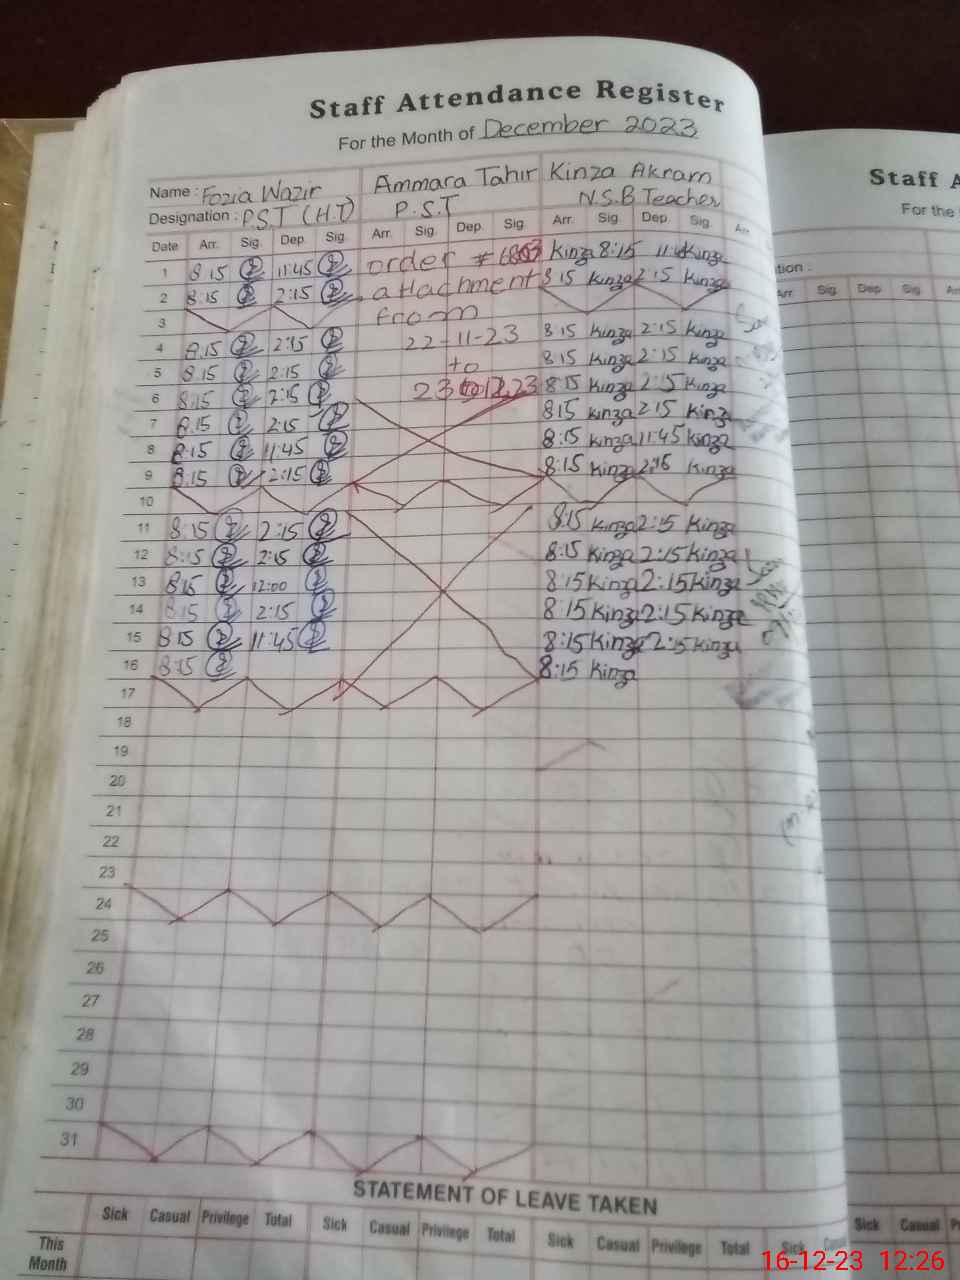 Staff Attendance Register
For the Month of December 2023
Staff A
For the
Name : Fozia Wazir Ammara Tahir Kinza Akram
Designation : P.S.T (H.T) P.S.T N.S.B Teacher
tion :
Date Arr. Sig. Dep. Sig. Arr. Sig. Dep. Sig. Arr. Sig. Dep. Sig. Arr.
Arr. Sig. Dep. Sig.
1 8:15 11:45 order # Kinza 8:15 11:45 Kinza
2 8:15 2:15 attachment 8:15 Kinza 2:15 Kinza
3 from
4 8:15 2:15 22-11-23 8:15 Kinza 2:15 Kinza
5 8:15 2:15 to 8:15 Kinza 2:15 Kinza
6 8:15 2:15 8:15 Kinza 2:15 Kinza
7 8:15 2:15 8:15 Kinza 2:15 Kinza
8 8:15 11:45 8:15 Kinza 11:45 Kinza
9 8:15 2:15 8:15 Kinza 2:15 Kinza
10
11 8:15 2:15 8:15 Kinza 2:15 Kinza
12 8:15 2:15 8:15 Kinza 2:15 Kinza
13 8:15 12:00 8:15 Kinza 2:15 Kinza
14 8:15 2:15 8:15 Kinza 2:15 Kinza
15 8:15 11:45 8:15 Kinza 2:15 Kinza
16 8:15 8:15 Kinza
17
18
19
20
21
22
23
24
25
26
27
28
29
30
31
STATEMENT OF LEAVE TAKEN
Sick Casual Privilege Total Sick Casual Privilege Total Sick Casual Privilege Total Sick Casual
Sick Casual
This
Month
16-12-23 12:26